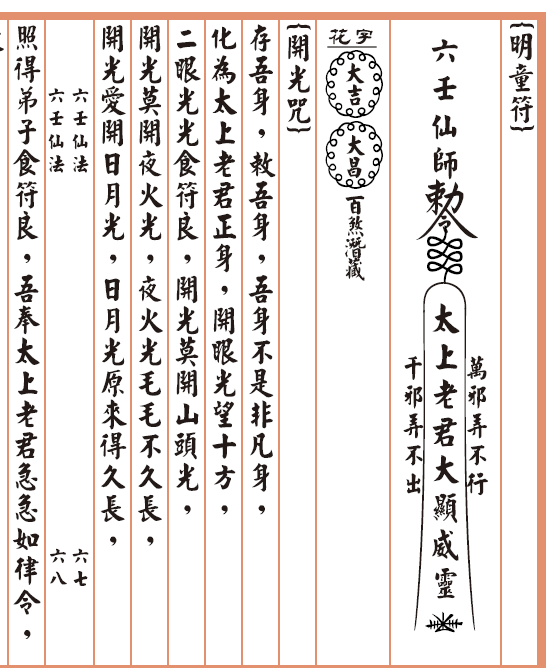 {明童符}
六壬仙師
勅令
太上老君大顯威靈
萬邪弄不行
千邪弄不出
花字
大吉
大昌
百煞潛藏
{開光咒}
存吾身，敕吾身，吾身不是非凡身，
化為太上老君正身，開眼光望十方，
二眼光光食符良，開光莫開山頭光，
開光莫開夜火光，夜火光毛毛不久長，
開光愛開日月光，日月光原來得久長，
六壬仙法
六七
六壬仙法
六八
照得弟子食符良，吾奉太上老君急急如律令，